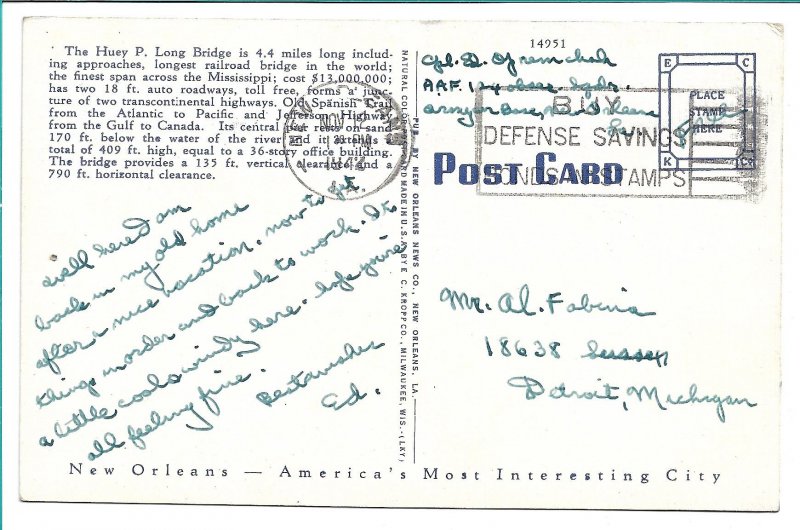 The Huey P. Long Bridge is 4.4 miles long includ-
ing approaches, longest railroad bridge in the world;
the finest span across the Mississippi; cost $13,000,000;
has two 18 ft. auto roadways, toll free, forms a junc-
ture of two transcontinental highways. Old Spanish Trail
from the Atlantic to Pacific and Jefferson Highway
from the Gulf to Canada. Its central pier rests on sand
170 ft. below the water of the river and it extends a
total of 409 ft. high, equal to a 36-story office building.
The bridge provides a 135 ft. vertical clearance and a
790 ft. horizontal clearance.
well here I am
back in my old home
after a nice vacation. now to get
things in order and back to work. Its
a little cool & windy here. hope you're
all feeling fine.
Best wishes
Ed.
PUB. BY NEW ORLEANS NEWS CO., NEW ORLEANS, LA.
E. C. KROPP CO., MILWAUKEE, WIS.
14951
Cpl. Ed.
A.A.F.
Army air Base, New Orleans
E C
PLACE
STAMP
HERE
K Co
NOV 12
1942
BUY
DEFENSE SAVINGS
BONDS AND STAMPS
POST CARD
Mr. Al. Fabina
18638 Sussex
Detroit, Michigan
New Orleans — America's Most Interesting City